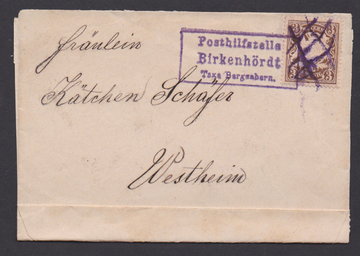 Fräulein
Kätchen Schäfer
Westheim
Posthilfstelle
Birkenhördt
Taxe Bergzabern.
3 3